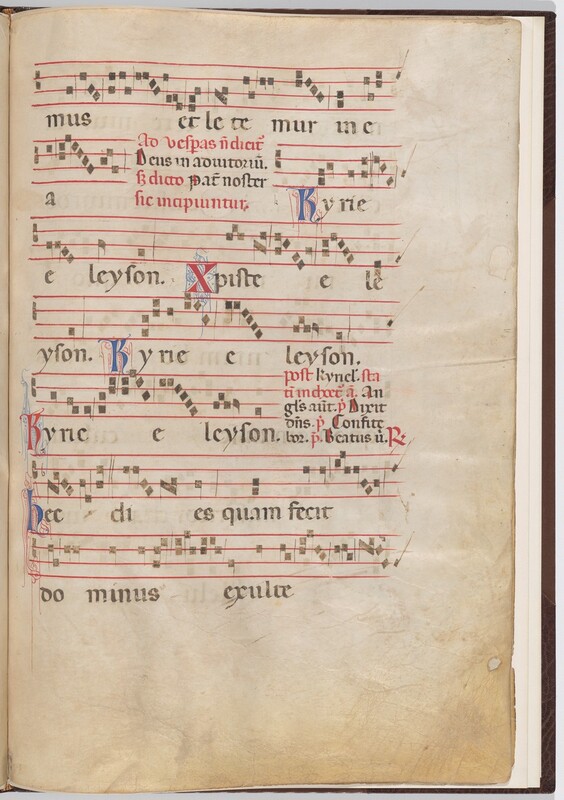 mus et le te mur in e
Ad vesp̄as n̄ dicit᷑
Deus in adiutoriū.
s̄ dicto pat̄ noster
a sic incipiuntur. Kyrie
e leyson. Xpiste e le
yson. Kyrie e leyson.
post kyriel᷑. sta
An
gl̄s aūt. p̄ Dixit
Kyrie e leyson. dn̄s. p̄. Confite
bor. p̄. Beatus ū. R̄
hec di es quam fecit
do minus exulte